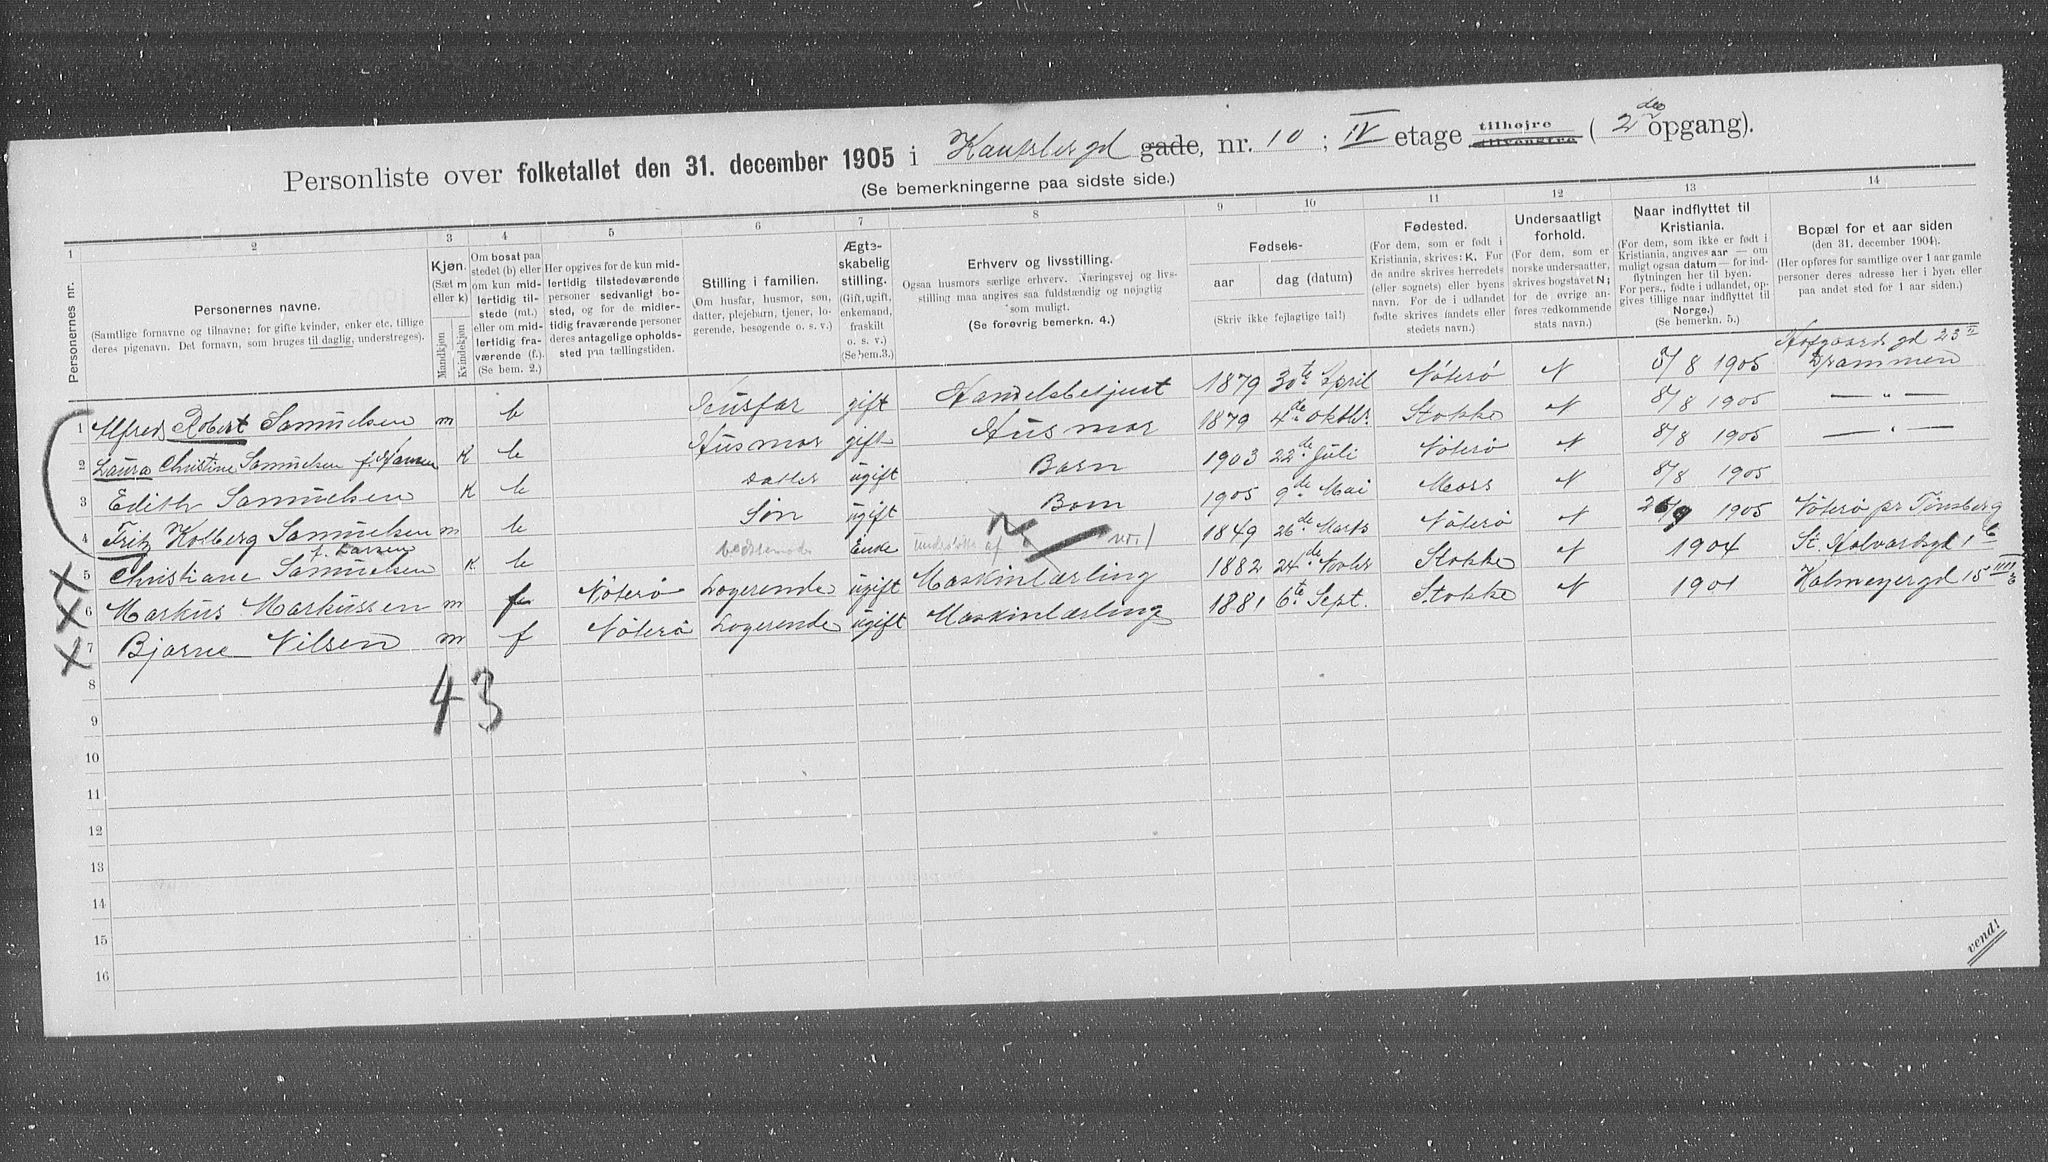 Personliste over folketallet den 31. december 1905 i Hausbergd gade, nr. 10 ; IV etage tilhøjre tilvenstre ( 2den opgang).
(Se bemerkningerne paa sidste side.)
1 2 3 4 5 6 7 8 9 10 11 12 13 14
Personernes nr.
Personernes navne.
(Samtlige fornavne og tilnavne; for gifte kvinder, enker etc. tillige
deres pigenavn. Det fornavn, som bruges til daglig, understreges).
Kjøn.
(Sæt m
eller k)
Mandkjøn
Kvindekjøn
Om bosat paa
stedet (b) eller
om kun mid-
lertidig til-
stede (mt.)
eller om mid-
lertidig fra-
værende (f.)
(Se bem. 2.)
Her opgives for de kun mid-
lertidig tilstedeværende
personer sedvanligt bo-
sted, og for de midler-
tidig fraværende personer
deres antagelige opholds-
sted paa tællingstiden.
Stilling i familien.
(Om husfar, husmor, søn,
datter, plejebarn, tjener, lo-
gerende, besøgende o. s. v.)
Ægte-
skabelig
stilling.
(Gift, ugift,
enkemand,
fraskilt
o. s. v.)
(Se bem. 3.)
Erhverv og livsstilling.
Ogsaa husmors særlige erhverv. Næringsvej og livs-
stilling maa angives saa fuldstændig og nøjagtig
som muligt.
(Se forøvrig bemerkn. 4.)
Fødsels-
aar dag (datum)
(Skriv ikke fejlagtige tal!)
Fødested.
(For dem, som er født i
Kristiania, skrives: K. For
de andre skrives herredets
(eller sognets) eller byens
navn. For de i udlandet
fødte skrives landets eller
stedets navn.)
Undersaatligt
forhold.
(For dem, som er
norske undersaatter,
skrives bogstavet N;
for de øvrige an-
føres vedkommende
stats navn.)
Naar indflyttet til
Kristiania.
(For dem, som ikke er født i
Kristiania, angives aar — om
muligt ogsaa datum — for ind-
flytningen her til byen.
For pers., fødte i udlandet, op-
gives tillige naar indflyttet til
Norge.)
(Se bemerkn. 5.)
Bopæl for et aar siden
(den 31. december 1904).
(Her opføres for samtlige over 1 aar gamle
personer deres adresse her i byen eller
paa andet sted for 1 aar siden.)
1 Alfred Robert Samuelsen m b Husfar gift Handelsbetjent 1879 30te April Nøterø N 5/8 1905 Hofgaards gd 23 II Drammen
2 Laura Christine Samuelsen f. Hansen K b Husmor gift Husmor 1879 4de Oktbr. Stokke N 5/8 1905 — " —
3 Edith Samuelsen K b Datter ugift Barn 1903 22de Juli Nøterø N 5/8 1905 — " —
4 Fritz Kolberg Samuelsen m b Søn ugift Barn 1905 9de Mai Moss N 5/8 1905
5 Christiane Samuelsen f. Larsen K b Enke 1849 26de Marts Nøterø N 26/9 1905 Nøterø pr Tønsberg
6 Markus Markussen m f Nøterø Logerende ugift Maskinlærling 1882 24de Novbr Stokke N 1904 St. Halvardsgd 1
7 Bjarne Nilsen m f Nøterø Logerende ugift Maskinlærling 1881 6te Sept. Stokke N 1901 Holmeyergd 15
43
8
9
10
11
12
13
14
15
16
vend!